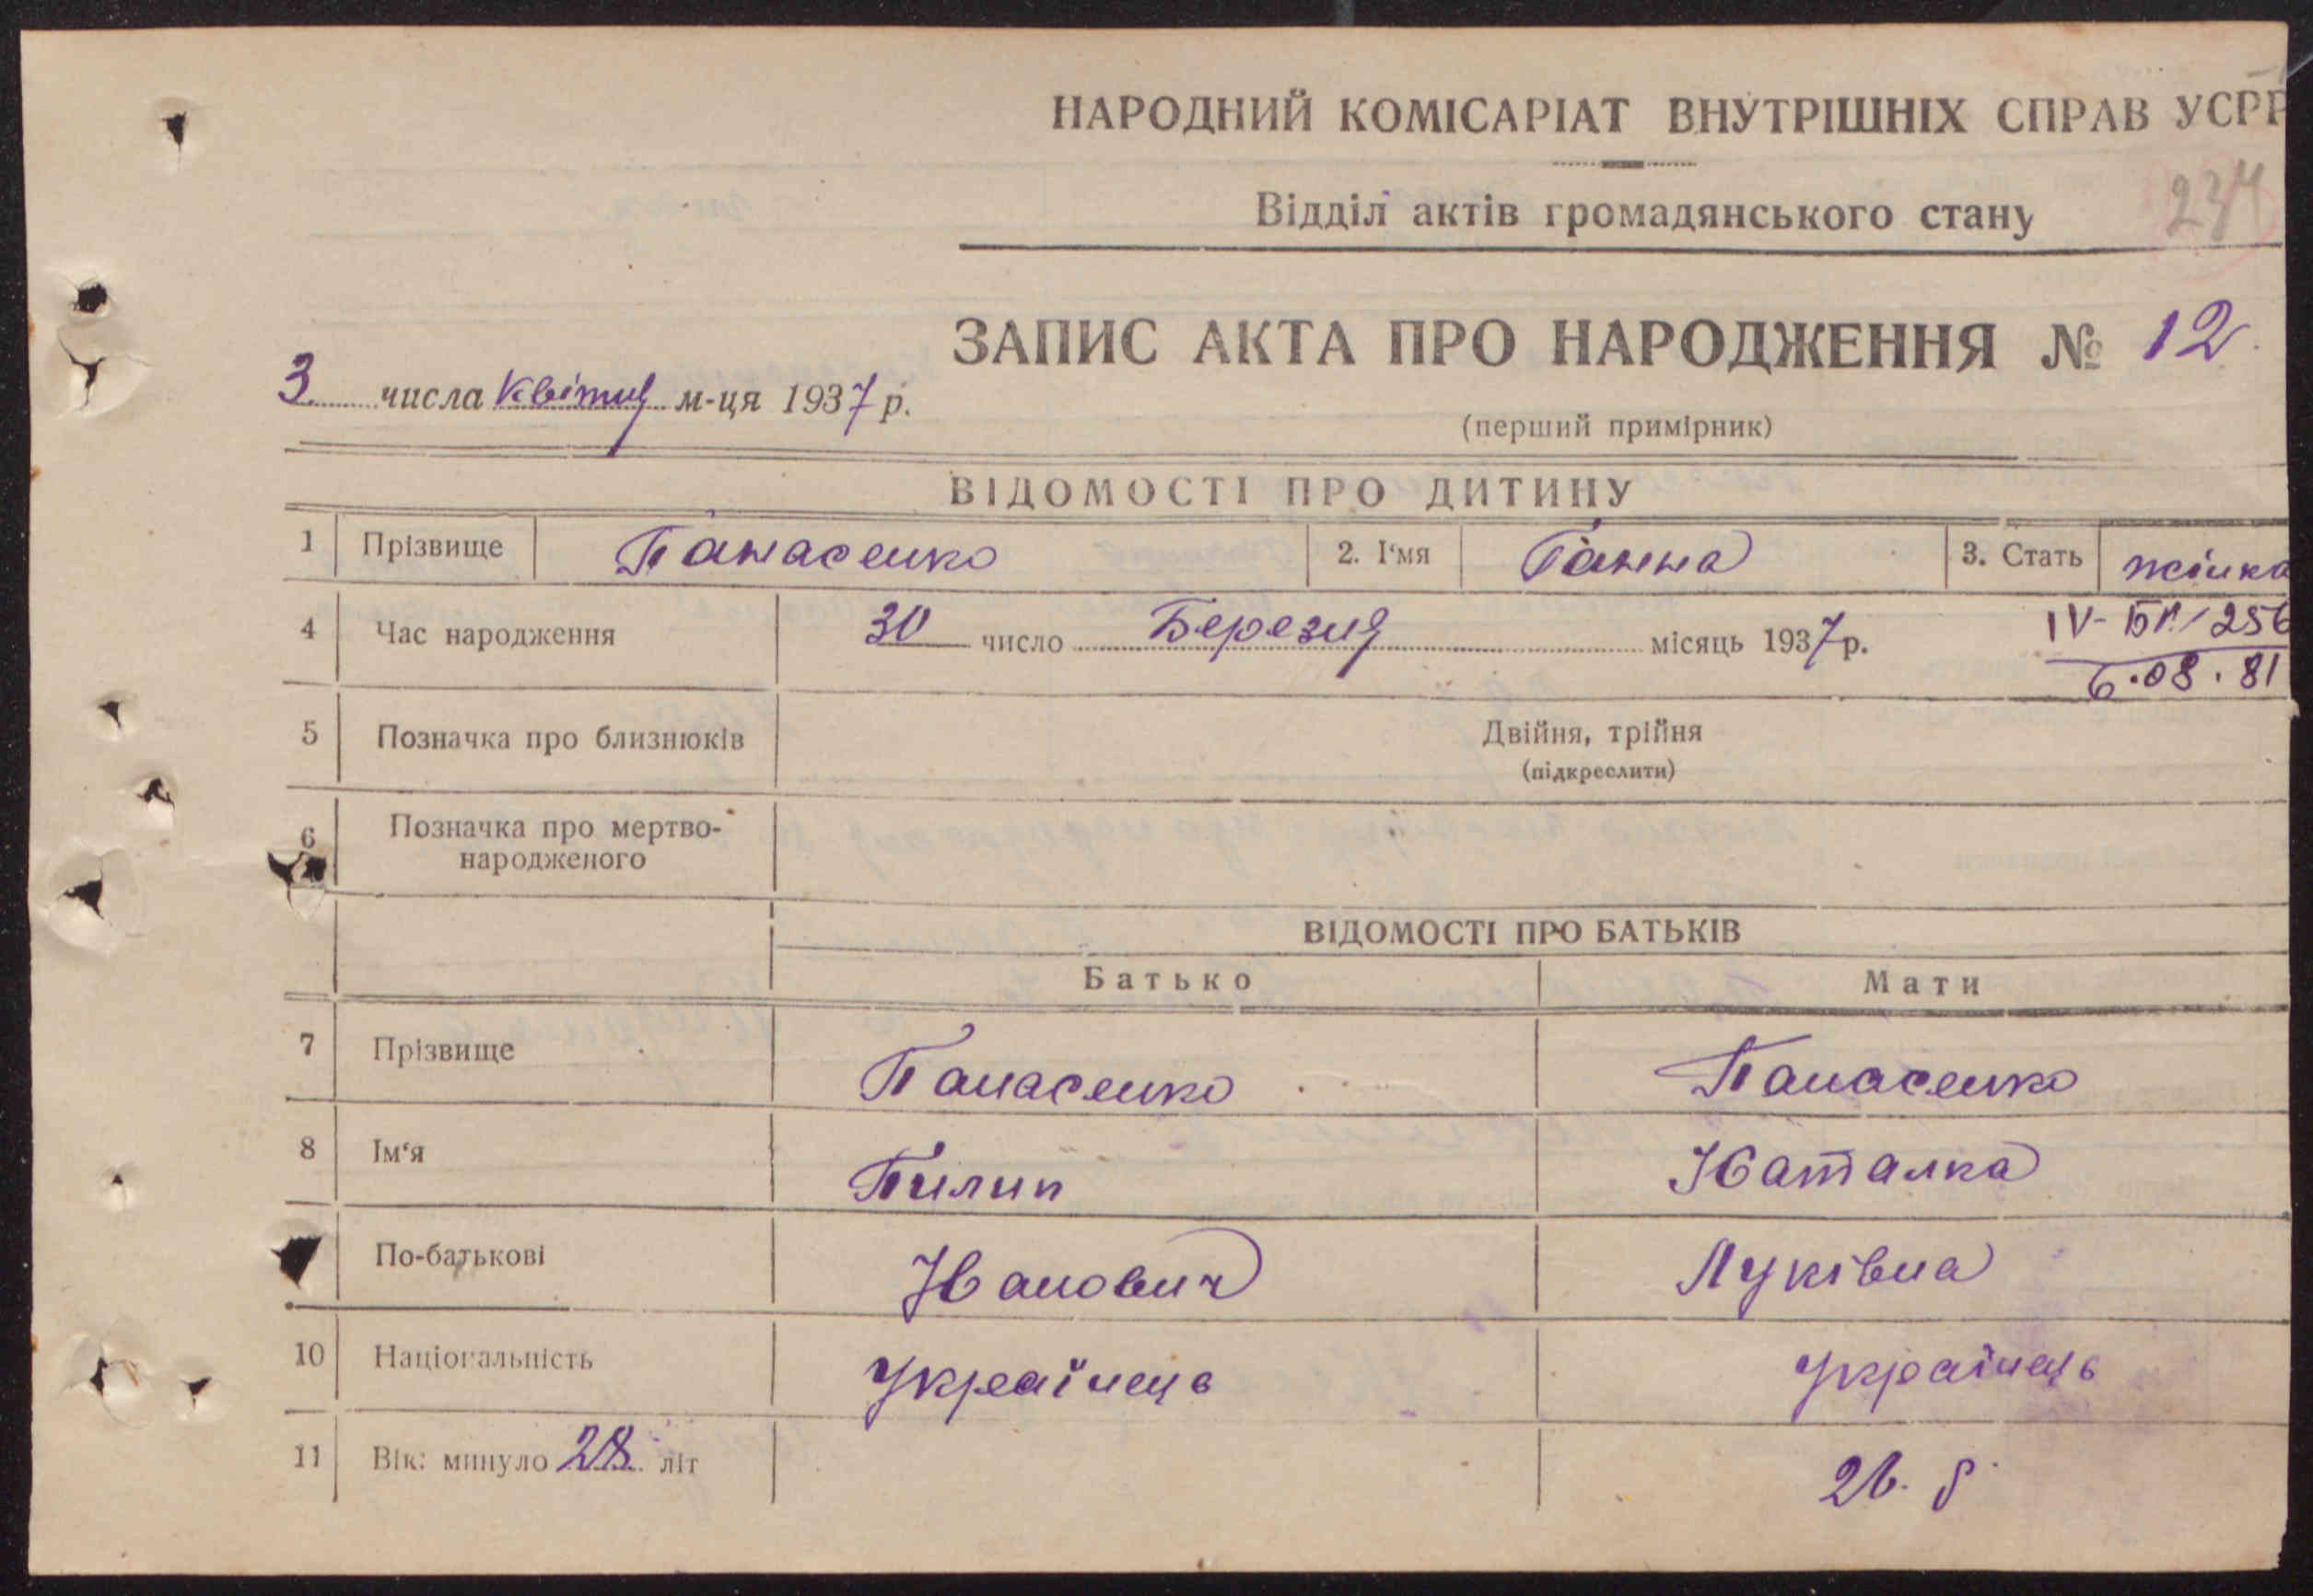 НАРОДНИЙ КОМІСАРІАТ ВНУТРІШНІХ СПРАВ УСРР
Відділ актів громадянського стану
234
ЗАПИС АКТА ПРО НАРОДЖЕННЯ № 12
3 числа Квітня м-ця 1937 р.
(перший примірник)
ВІДОМОСТІ ПРО ДИТИНУ
1 Прізвище Панасенко 2. І‘мя Ганна 3. Стать жінка
4 Час народження 30 число Березня місяць 1937 р.
IV-БК/256
6.08.81
5 Позначка про близнюків Двійня, трійня
(підкреслити)
6 Позначка про мертво-
народженого
ВІДОМОСТІ ПРО БАТЬКІВ
Батько Мати
7 Прізвище Панасенко Панасенко
8 Ім‘я Пилип Наталка
По-батькові Іванович Луківна
10 Національність Українець Українець
11 Вік: минуло 28 літ 26. р